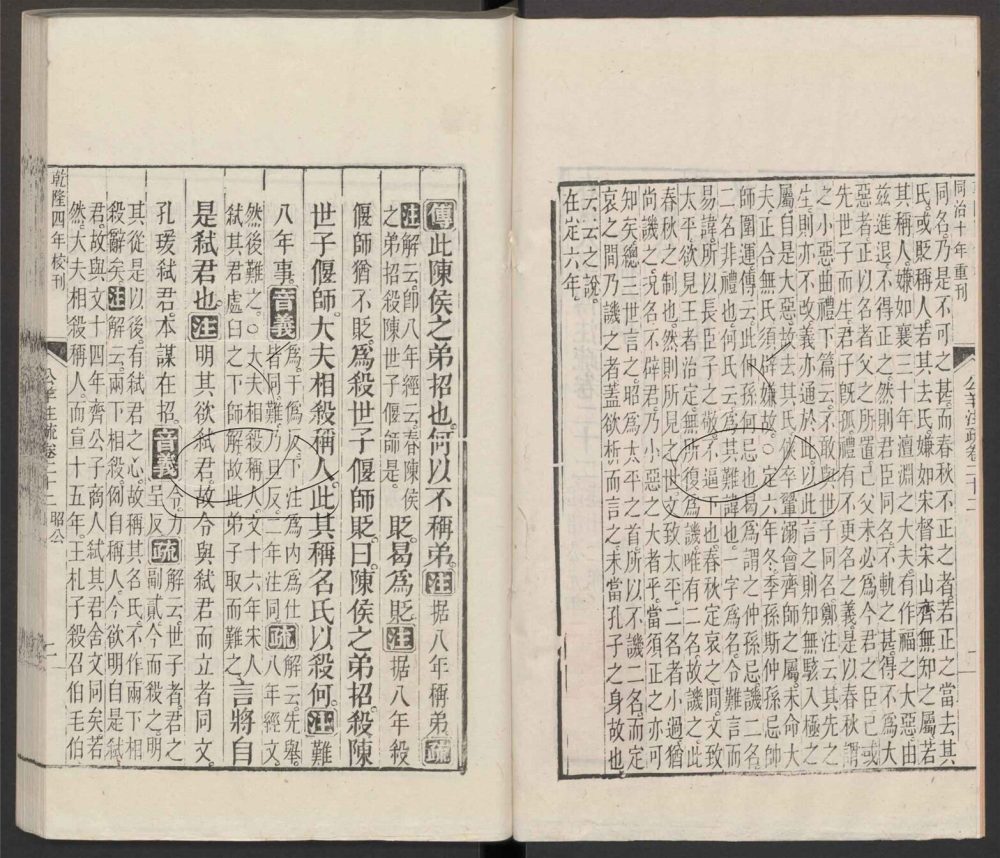 同治十年重刊
同名乃是不可之甚而春秋不正之者若正之當去其
氏或貶稱人若其去氏嫌如宋督宋山齊無知之屬若
其稱人嫌如襄三十年澶淵之大夫有作福之大惡由
茲進退不得正之然則君臣同名不軌之甚得不爲大
惡者正以名者父之所置已父未必爲今君之臣已或
先世子而生君子既孤禮有不更名之義是以春秋謂
之小惡曲禮下篇云不敢與世子同名鄭注云其先之
生則亦不改義亦通於此以此言之則知無駭入極之
屬自是大惡故去其氏俠卒翬溺會齊師之屬未命大
夫正合無氏須辟嫌故○定六年冬季孫斯仲孫忌帥
師圍運傳云此仲孫何忌也曷爲謂之仲孫忌譏二名
二名非禮也何氏云爲其難諱也一字爲名令難言而
易諱所以長臣子之敬不逼下也春秋定哀之間文致
太平欲見王者治定無所復爲譏唯有二名故譏之此
春秋之制也然則所見之世文致太平二名者小過猶
尚譏之況名不辟君乃小惡之大者乎當須正之亦可
知矣總三世言之昭爲太平之首所以不譏二名而定
哀之間乃譏之者蓋欲析而言之未當孔子之身故也
云云之說
在定六年
公羊注疏卷二十二
傳此陳侯之弟招也何以不稱弟注据八年稱弟疏
注解云即八年經云春陳侯
之弟招殺陳世子偃師是貶曷爲貶注据八年殺
偃師猶不貶爲殺世子偃師貶曰陳侯之弟招殺陳
世子偃師大夫相殺稱人此其稱名氏以殺何注難
八年事音義爲于僞反下注爲内爲仕
者同難乃旦反二年注同疏八年經文
解云先舉
然後難之○大夫相殺稱人文十六年宋人
弑其君處臼之下師解故此弟子取而難之言將自
是弑君也注明其欲弑君故令與弑君而立者同文
孔瑗弑君本謀在招音義令力
呈反疏解云世子者君之
副貳今而殺之明
其從是以後有弑君之心故稱其名氏不作兩下相
殺辭矣注解云兩下相殺例自稱人今欲明自是弑
君故與文十四年齊公子商人弑其君舍文同矣若
然大夫相殺稱人而宣十五年王札子殺召伯毛伯
乾隆四年校刊
公羊注疏卷二十二 昭公
二